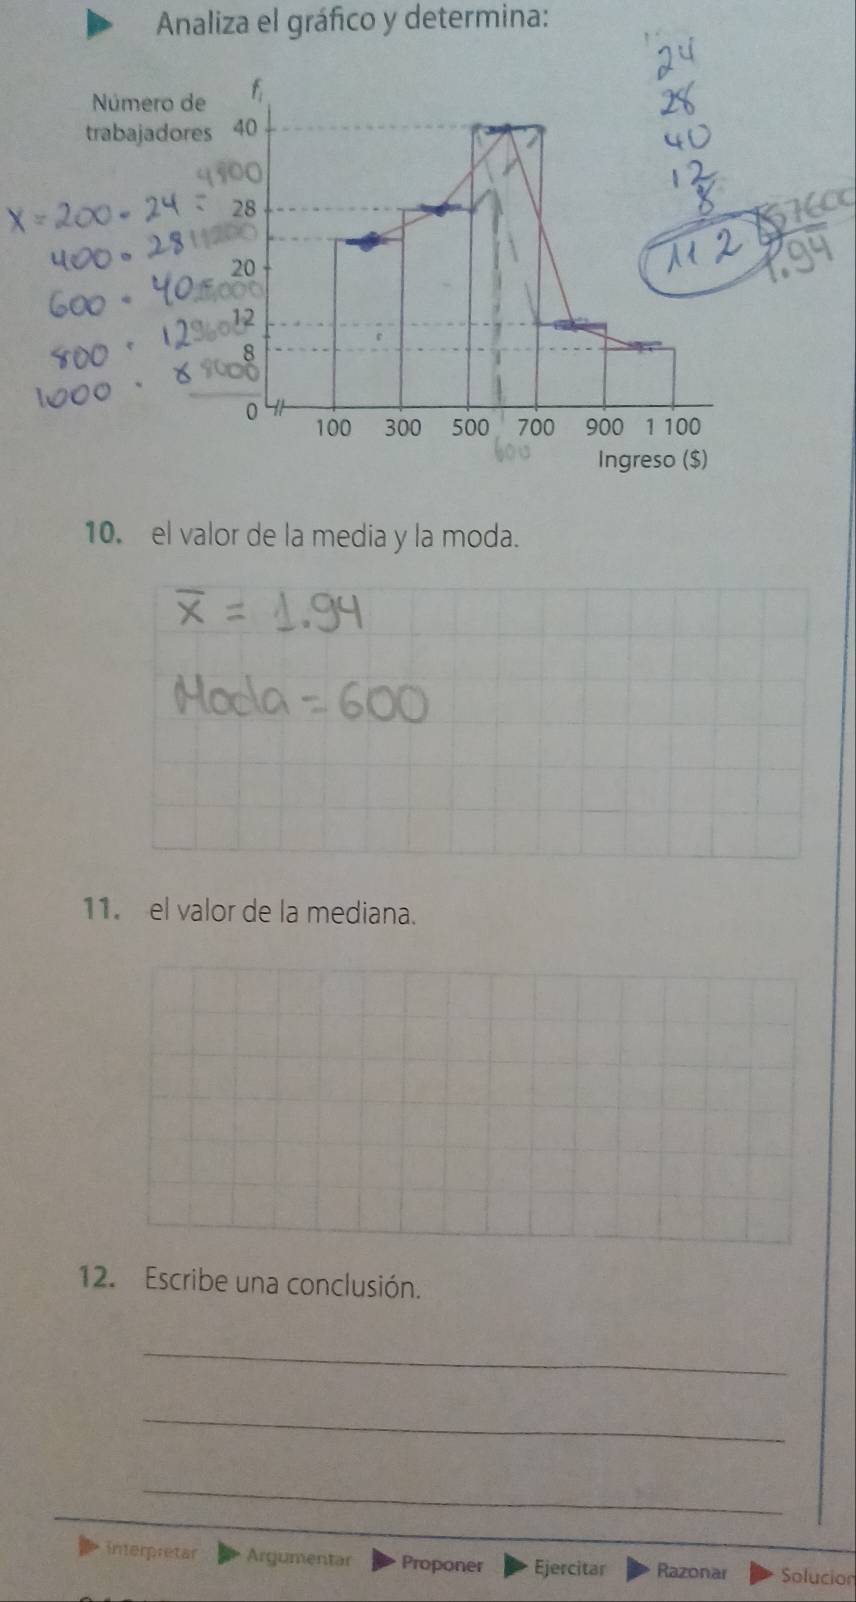 Analiza el gráfico y determina:
24
28
40
12
8
112
1.94
Número de
trabajadores
fi
40
28
20
12
8
0
4800
x = 200 . 24 =
400 . 28 11200
600 . 40
800 . 12 9600
1000 . 8 8000
100 300 500 700 900 1 100
600
Ingreso ($)
10. el valor de la media y la moda.
x̅ = 1.94
Moda = 600
11. el valor de la mediana.
12. Escribe una conclusión.
Interpretar Argumentar Proponer Ejercitar Razonar Solucion